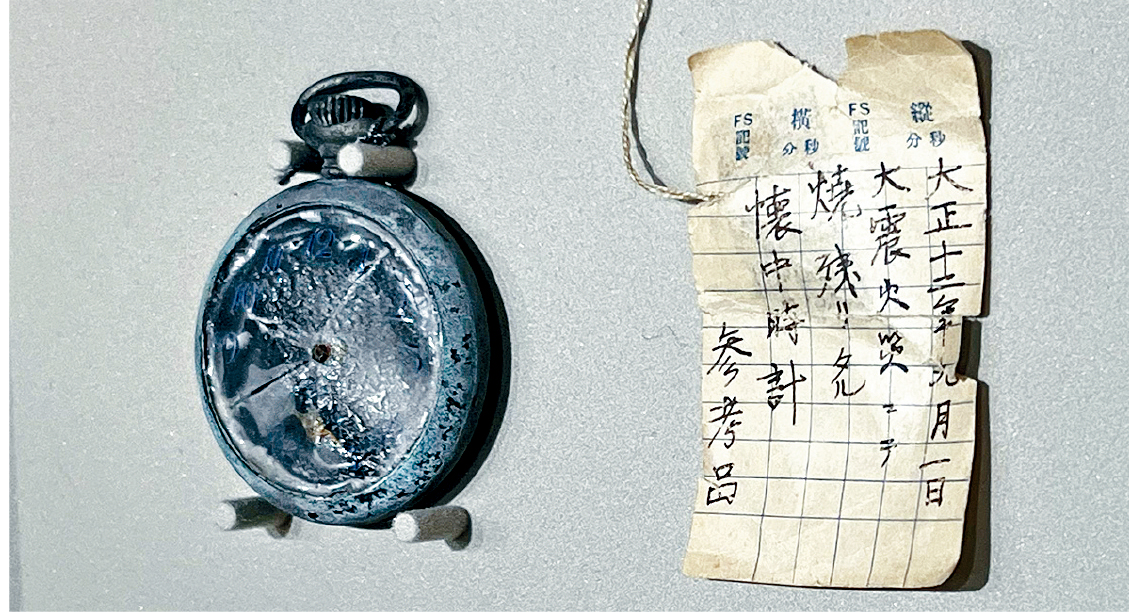 12
11
10
9
縱
分秒
FS
記號
橫
分秒
FS
記號
大正十二年九月一日
大震火災ニテ
燒残リタル
懷中時計
参考品